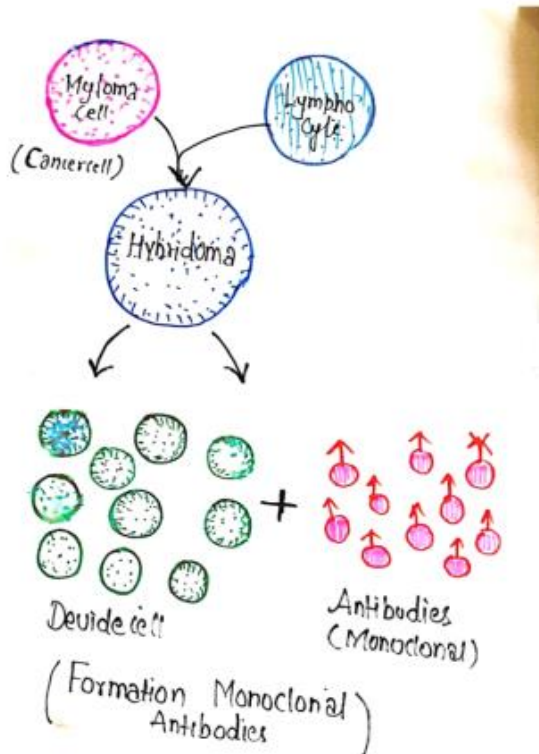 Myloma
Cell
(Cancercell)
Lympho
Cyte
Hybridoma
+
Devide cell
Antibodies
(Monoclonal)
(Formation Monoclonial
Antibodies)